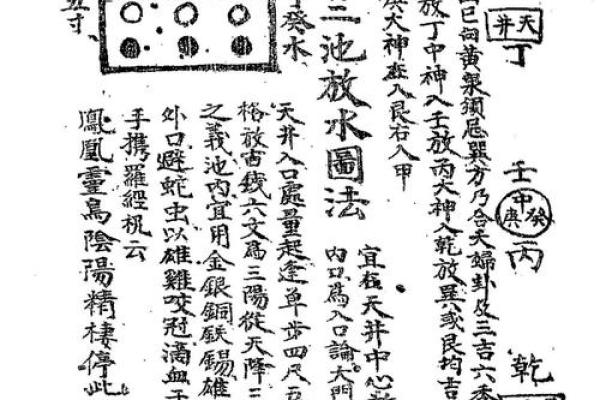 天井
丁
壬
中
癸
庚
丙
乾
巳向黃泉須忌巽方乃合夫婦卦及三吉六秀
放丁中神入壬放丙大神入乾放巽或艮均吉
庚大神在入艮右入甲
三池放水圖法
宜在天井中心
內口為入口論大門
癸水
天井入口處量起逢單步四尺五
格放古錢六文為三陽從天降三
之義池內宜用金銀銅鉄錫雄
外口避蛇虫以雄雞咬冠滴血于
手携羅經杌云
鳳凰靈鳥陰陽精棲停此
五寸